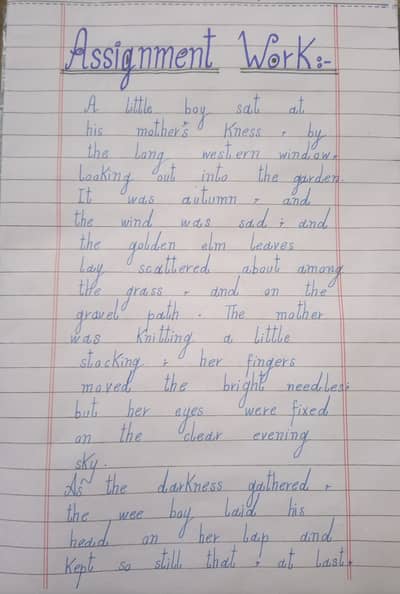 Assignment Work:-
A little boy sat at
his mother's Kness, by
the long western window,
Looking out into the garden.
It was autumn, and
the wind was sad; and
the golden elm leaves
lay scattered about among
the grass, and on the
gravel path. The mother
was Knitting a little
stocking, her fingers
moved the bright needles;
but her eyes were fixed
on the clear evening
sky.
As the darkness gathered,
the wee boy laid his
head on her lap and
Kept so still that, at last,